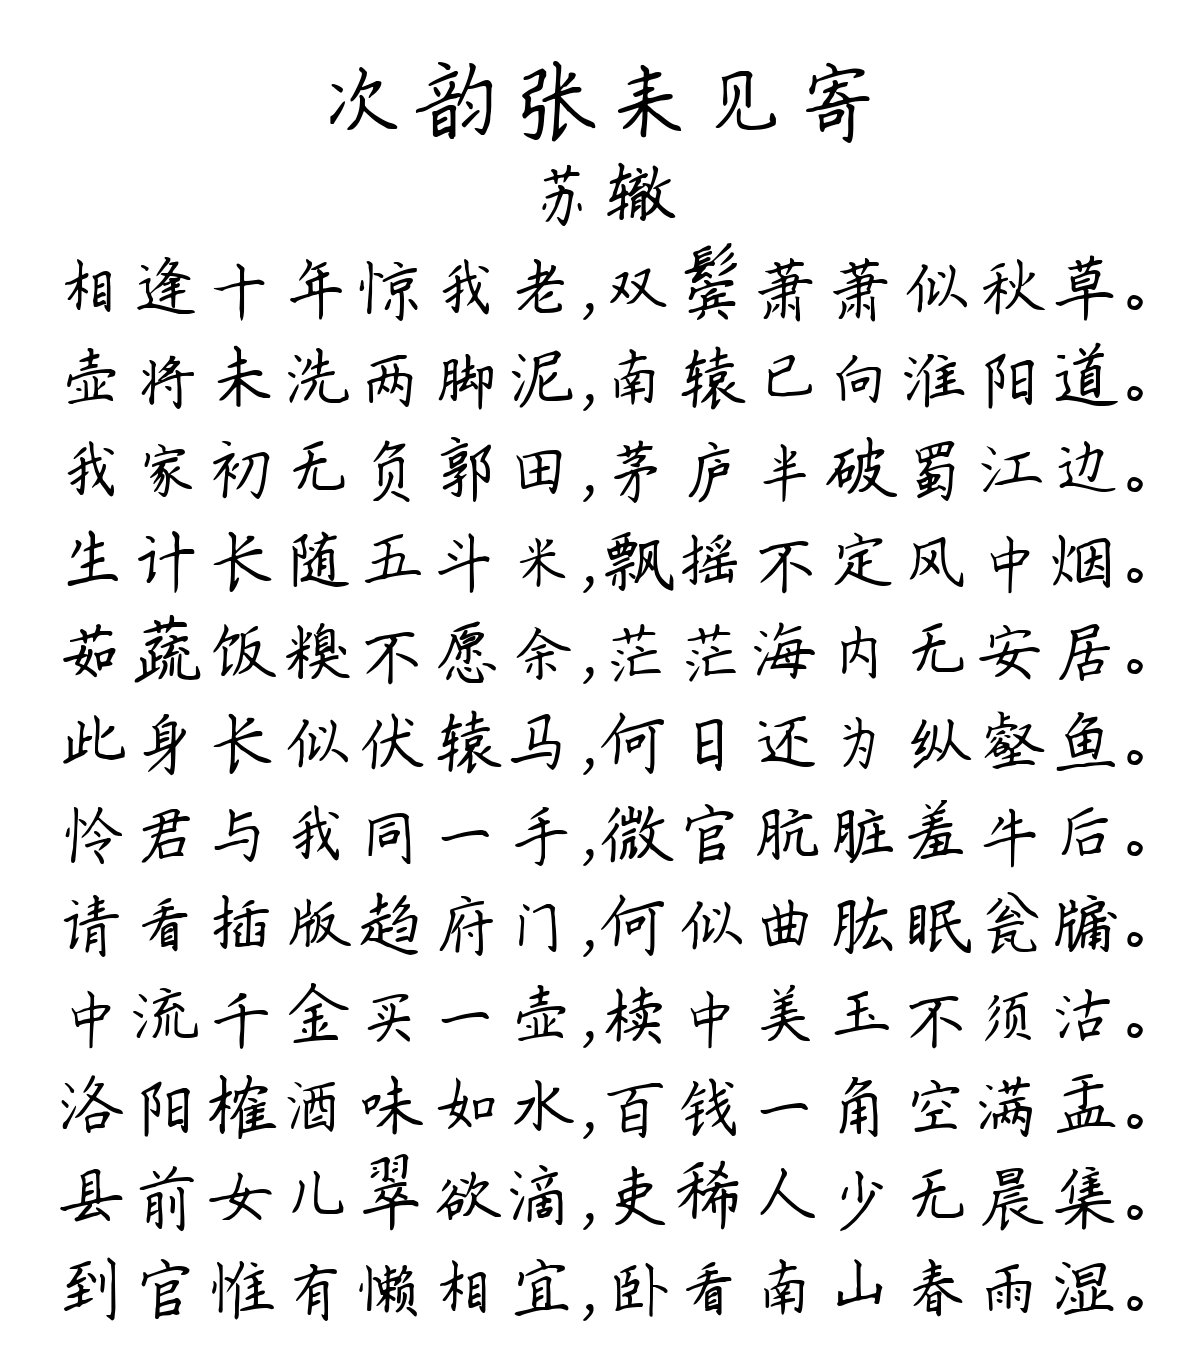 次韵张耒见寄
苏辙
相逢十年惊我老,双鬓萧萧似秋草。
壶将未洗两脚泥,南辕已向淮阳道。
我家初无负郭田,茅庐半破蜀江边。
生计长随五斗米,飘摇不定风中烟。
茹蔬饭糗不愿余,茫茫海内无安居。
此身长似伏辕马,何日还为纵壑鱼。
怜君与我同一手,微官肮脏羞牛后。
请看插版趋府门,何似曲肱眠瓮牖。
中流千金买一壶,椟中美玉不须沽。
洛阳榷酒味如水,百钱一角空满盂。
县前女儿翠欲滴,吏稀人少无晨集。
到官惟有懒相宜,卧看南山春雨湿。